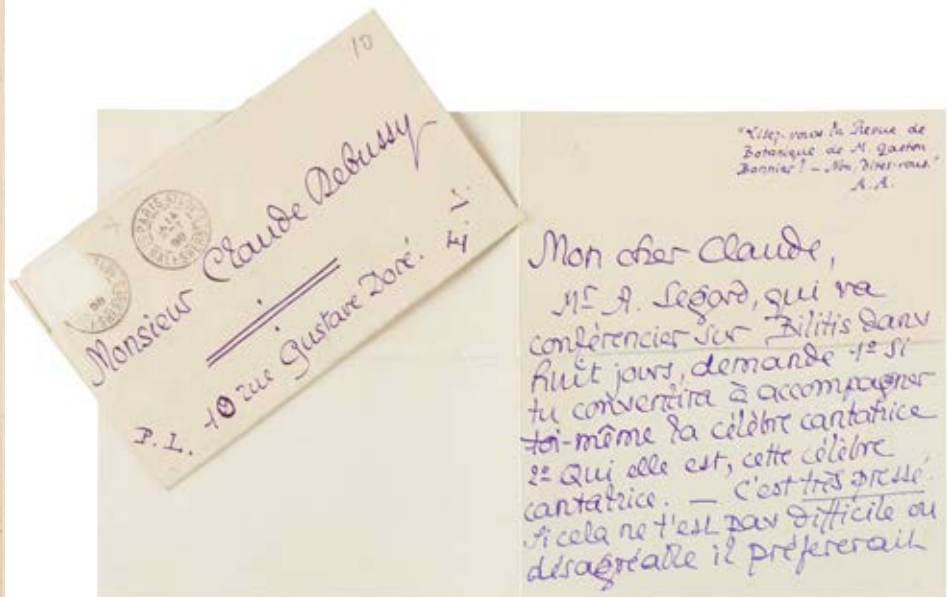 10
PARIS
Monsieur Claude Debussy
10 rue Gustave Doré.
E. V.
P. L.
"Lisez-vous la Revue de
Botanique de M. Gaston
Bonnier? — Non, dites-vous."
A. A.
Mon cher Claude,
Mr A. Segard, qui va
conférencier sur Bilitis dans
huit jours, demande 1º si
tu consentira à accompagner
toi-même la célèbre cantatrice
2º Qui elle est, cette célèbre
cantatrice. — C'est très pressé.
Si cela ne t'est pas difficile ou
désagréable il préfererait